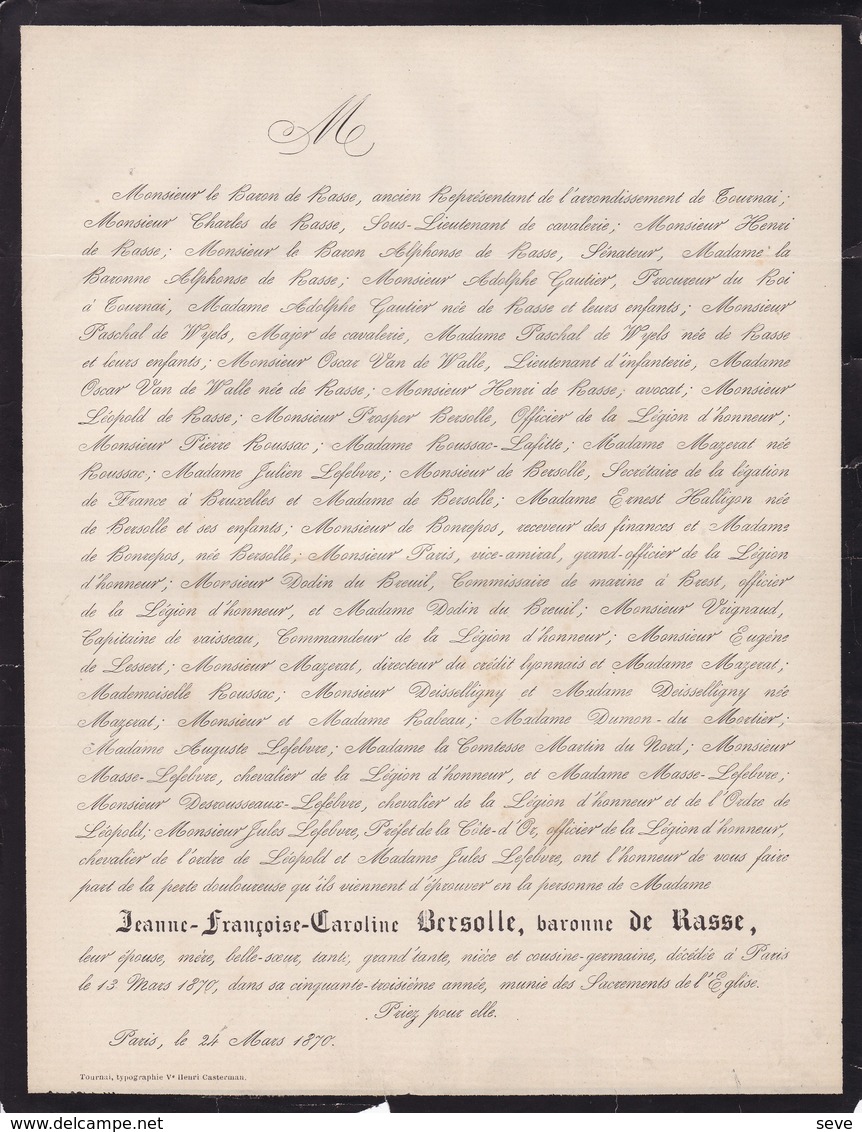 M
Monsieur le Baron de Rasse, ancien Représentant de l'arrondissement de Tournai;
Monsieur Charles de Rasse, Sous-Lieutenant de cavalerie; Monsieur Henri
de Rasse; Monsieur le Baron Alphonse de Rasse, Sénateur, Madame la
Baronne Alphonse de Rasse; Monsieur Adolphe Gautier, Procureur du Roi
à Tournai, Madame Adolphe Gautier née de Rasse et leurs enfants; Monsieur
Paschal de Wyels, Major de cavalerie, Madame Paschal de Wyels née de Rasse
et leurs enfants; Monsieur Oscar Van de Walle, Lieutenant d'infanterie, Madame
Oscar Van de Walle née de Rasse; Monsieur Henri de Rasse, avocat; Monsieur
Léopold de Rasse; Monsieur Prosper Bersolle, Officier de la Légion d'honneur;
Monsieur Pierre Roussac; Madame Roussac-Lafitte; Madame Mazerat née
Roussac; Madame Julien Lefebvre; Monsieur de Bersolle, Secrétaire de la légation
de France à Bruxelles et Madame de Bersolle; Madame Ernest Halligon née
de Bersolle et ses enfants; Monsieur de Bonrepos, receveur des finances et Madame
de Bonrepos, née Bersolle; Monsieur Paris, vice-amiral, grand-officier de la Légion
d'honneur; Monsieur Dodin du Breuil, Commissaire de marine à Brest, officier
de la Légion d'honneur, et Madame Dodin du Breuil; Monsieur Vrignaud,
Capitaine de vaisseau, Commandeur de la Légion d'honneur; Monsieur Eugène
de Lessert; Monsieur Mazerat, directeur du crédit lyonnais et Madame Mazerat;
Mademoiselle Roussac; Monsieur Deisselligny et Madame Deisselligny née
Mazerat; Monsieur et Madame Rabeau; Madame Dumon-du Mortier;
Madame Auguste Lefebvre; Madame la Comtesse Martin du Nord; Monsieur
Masse-Lefebvre, chevalier de la Légion d'honneur, et Madame Masse-Lefebvre;
Monsieur Desrousseaux-Lefebvre, chevalier de la Légion d'honneur et de l'Ordre de
Léopold; Monsieur Jules Lefebvre, Préfet de la Côte-d'Or, officier de la Légion d'honneur,
chevalier de l'ordre de Léopold et Madame Jules Lefebvre, ont l'honneur de vous faire
part de la perte douloureuse qu'ils viennent d'éprouver en la personne de Madame
Jeanne-Françoise-Caroline Bersolle, baronne de Rasse,
leur épouse, mère, belle-sœur, tante, grand'tante, nièce et cousine-germaine, décédée à Paris
le 13 Mars 1870, dans sa cinquante-troisième année, munie des Sacrements de l'Eglise.
Priez pour elle.
Paris, le 24 Mars 1870.
Tournai, typographie Ve Henri Casterman.
seve